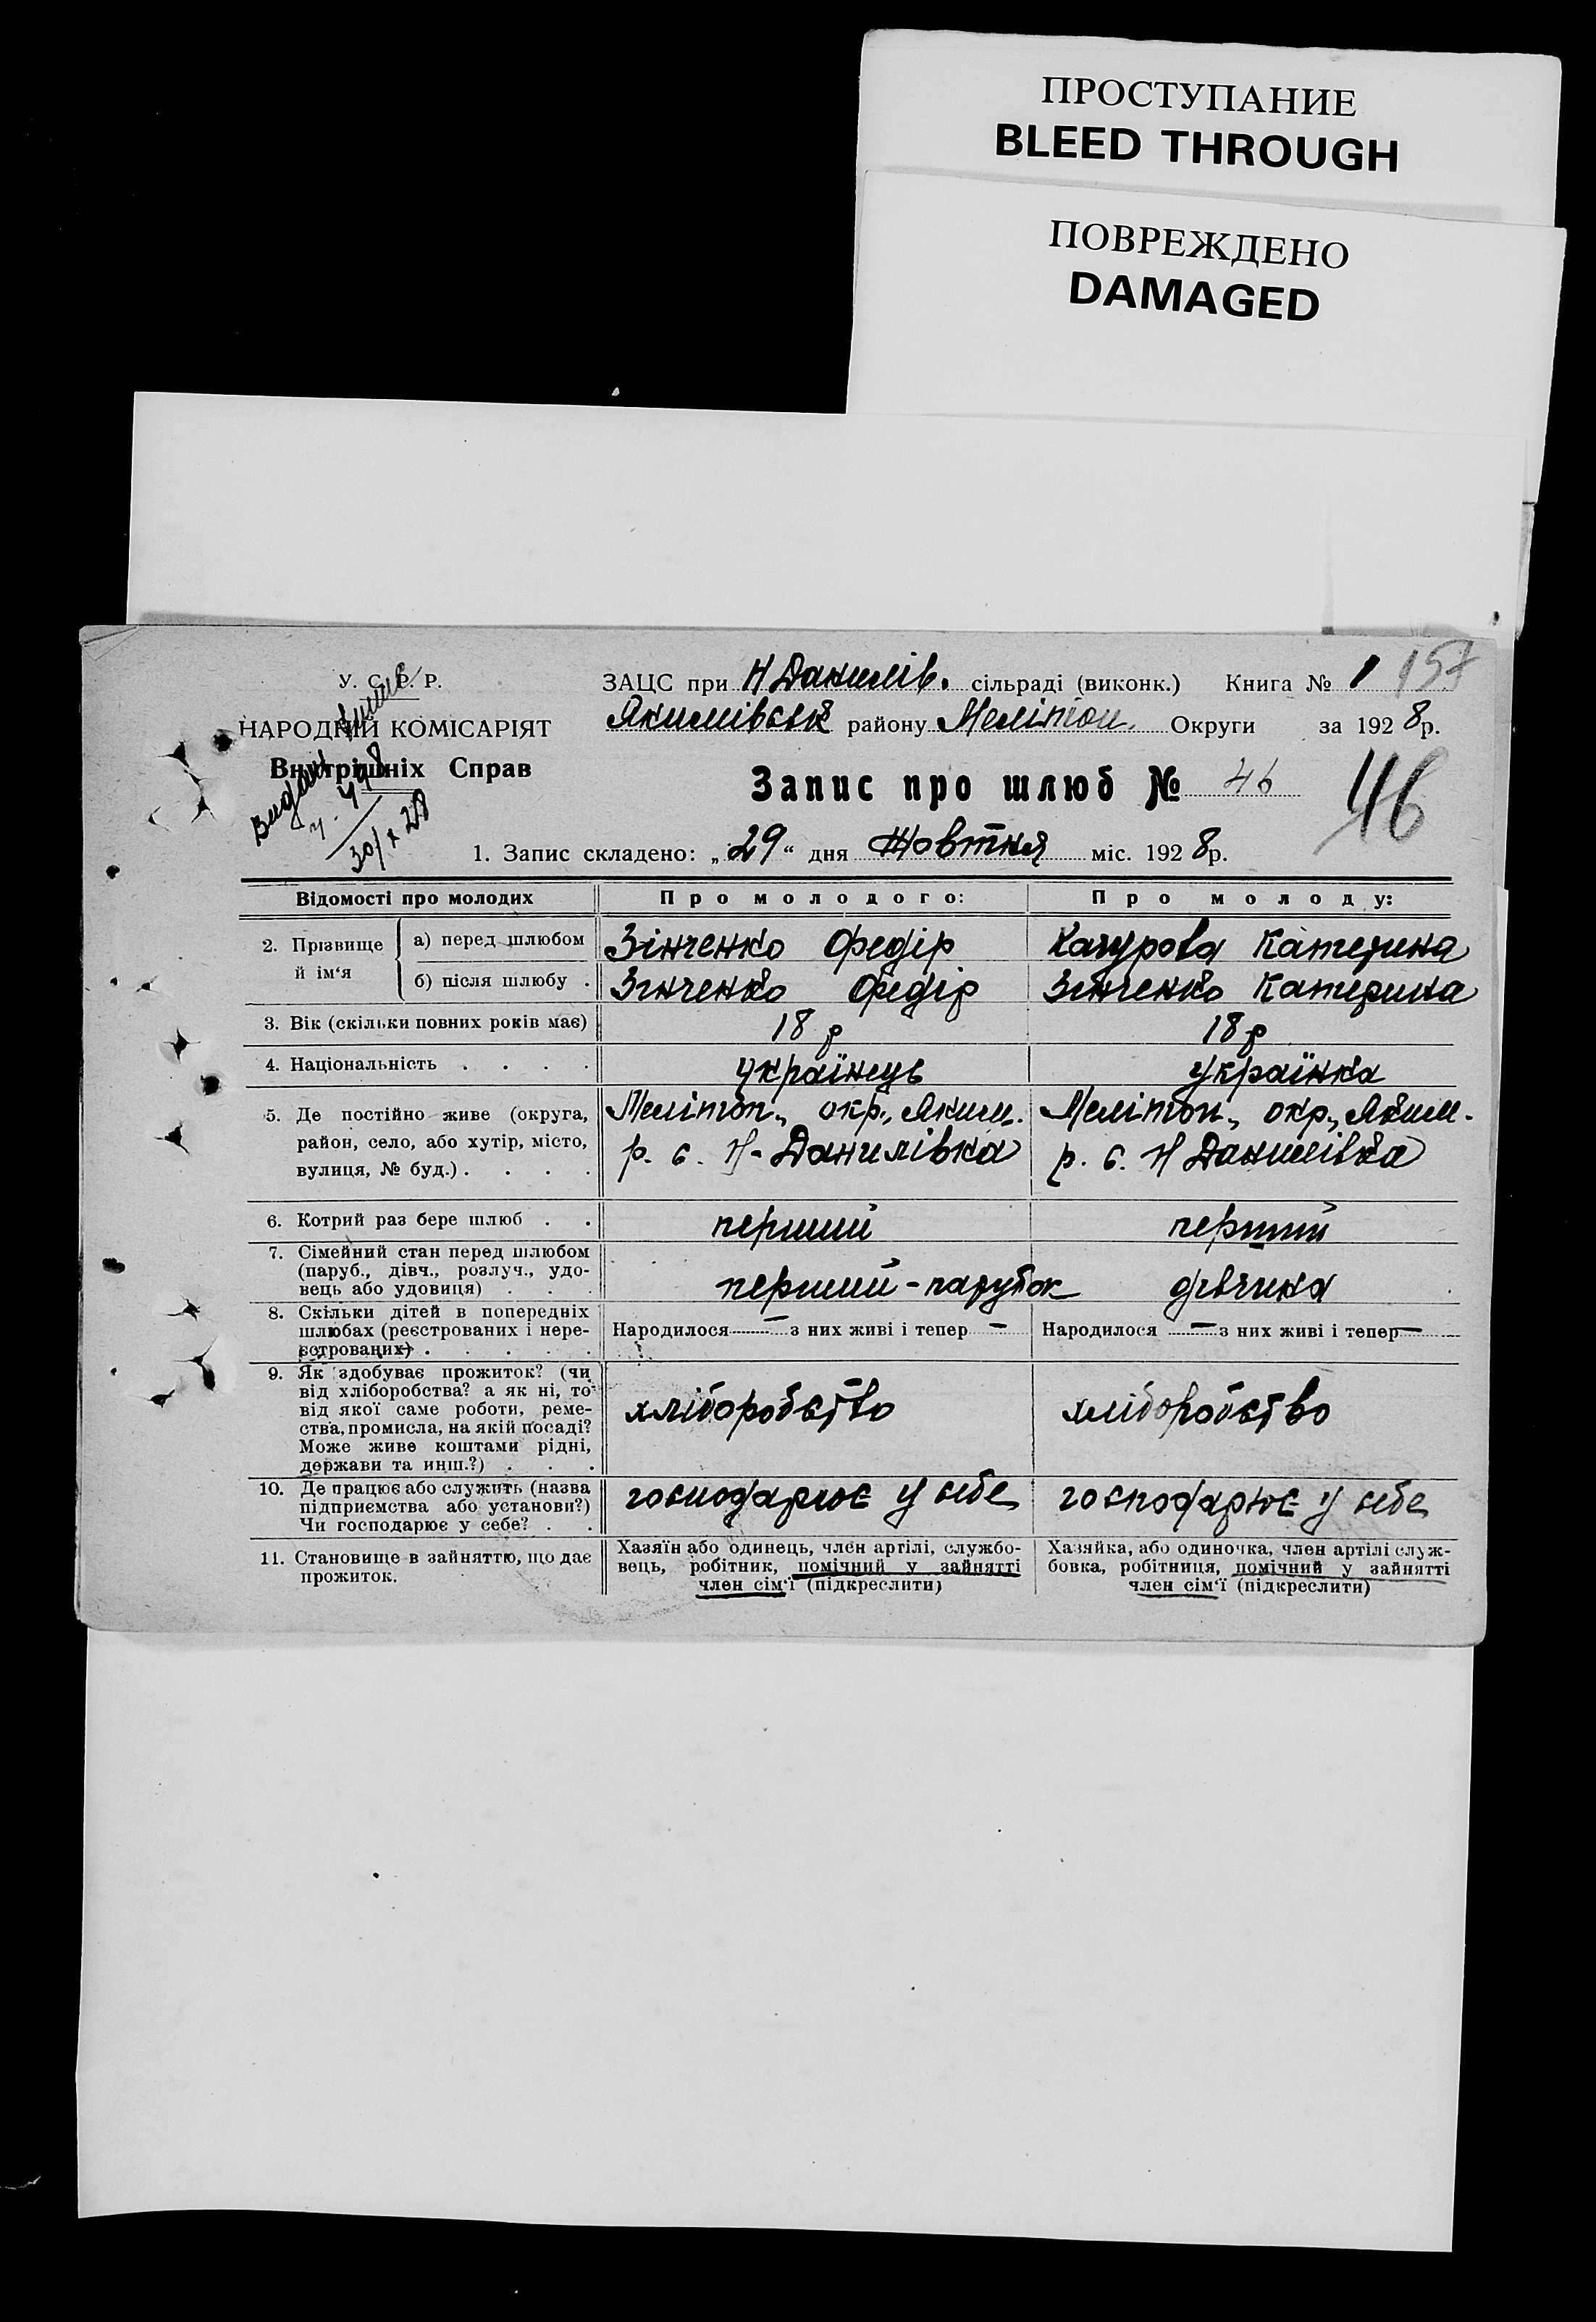 ПРОСТУПАНИЕ
BLEED THROUGH
ПОВРЕЖДЕНО
DAMAGED
У. С. Р. Р.
НАРОДНІЙ КОМІСАРІЯТ
Внутрішніх Справ
Видан
30/X 28
ЗАЦС при Н Данилів. сільраді (виконк.) Книга № 1 157
Якимівськ району Меліпоп. Округи за 1928р.
Запис про шлюб № 46 46
1. Запис складено: „29“ дня Жовтня міс. 1928р.
Відомості про молодих Про молодого: Про молоду:
2. Прізвище й ім‘я а) перед шлюбом Зінченко Федір Качурова Катерина
б) після шлюбу . Зінченко Федір Зінченко Катерина
3. Вік (скільки повних років має) 18 р 18 р
4. Національність . . . . українець українка
5. Де постійно живе (округа, Меліпоп., окр., Яким. Меліпоп., окр., Яким.
район, село, або хутір, місто, р. с. Н-Данилівка р. с. Н Данилівка
вулиця, № буд.) . . . .
6. Котрий раз бере шлюб . . перший перший
7. Сімейний стан перед шлюбом
(паруб., дівч., розлуч., удо-
вець або удовиця) . . . перший - парубок дівчина
8. Скільки дітей в попередніх
шлюбах (реєстрованих і нере- Народилося — з них живі і тепер — Народилося — з них живі і тепер —
єстрованих) . . . . .
9. Як здобуває прожиток? (чи
від хліборобства? а як ні, то
від якої саме роботи, реме- хліборобство хліборобство
ства, промисла, на якій посаді?
Може живе коштами рідні,
держави та инш.?) . . .
10. Де працює або служить (назва
підприємства або установи?) господарює у себе господарює у себе
Чи господарює у себе? . .
11. Становище в зайняттю, що дає
прожиток.
Хазяїн або одинець, член артілі, службо-
вець, робітник, помічний у зайнятті
член сім‘ї (підкреслити)
Хазяйка, або одиночка, член артілі служ-
бовка, робітниця, помічний у зайнятті
член сім‘ї (підкреслити)